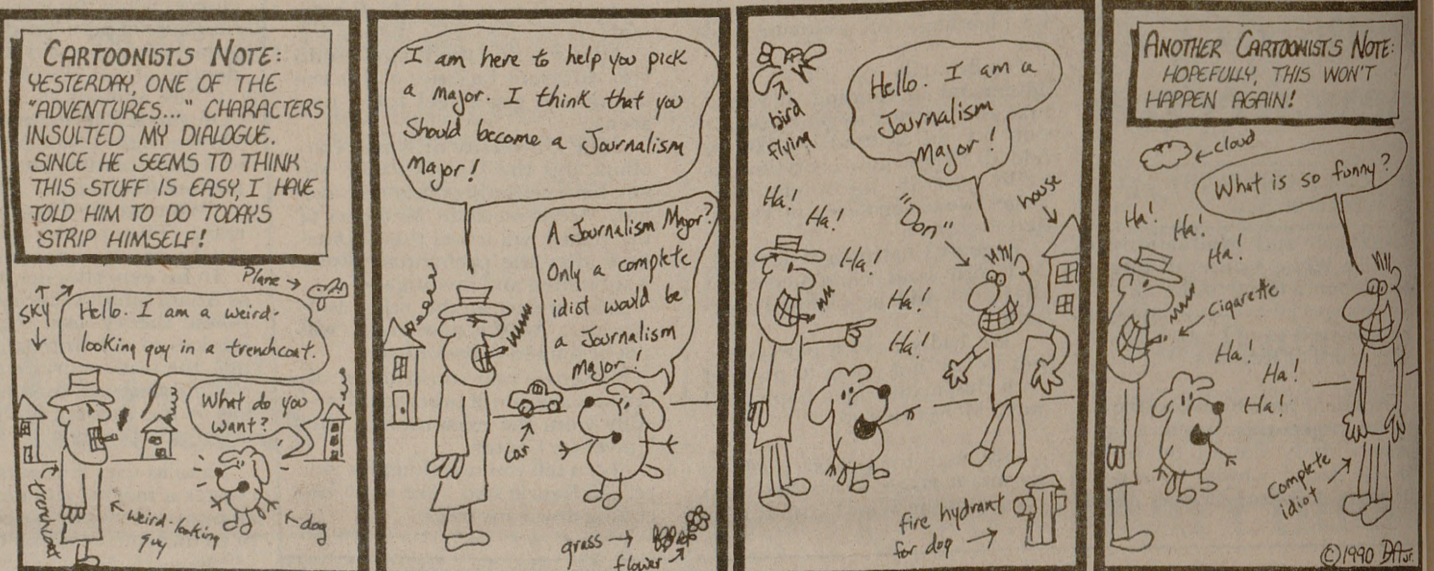 CARTOONISTS NOTE:
YESTERDAY, ONE OF THE
"ADVENTURES..." CHARACTERS
INSULTED MY DIALOGUE.
SINCE HE SEEMS TO THINK
THIS STUFF IS EASY, I HAVE
TOLD HIM TO DO TODAYS
STRIP HIMSELF!
Plane
SKY
Hello. I am a weird-
looking guy in a trenchcoat.
What do you
want?
trenchcoat
weird-looking
guy
dog
I am here to help you pick
a major. I think that you
Should become a Journalism
Major!
A Journalism Major?
Only a complete
idiot would be
a Journalism
Major!
car
grass
flower
bird
flying
Hello. I am a
Journalism
Major!
Ha!
Ha!
Ha!
"Don"
house
Ha!
Ha!
fire hydrant
for dog
ANOTHER CARTOONISTS NOTE:
HOPEFULLY, THIS WON'T
HAPPEN AGAIN!
cloud
What is so funny?
Ha!
Ha!
Ha!
cigarette
Ha!
Ha!
Ha!
Complete
idiot
©1990 DA Jr.